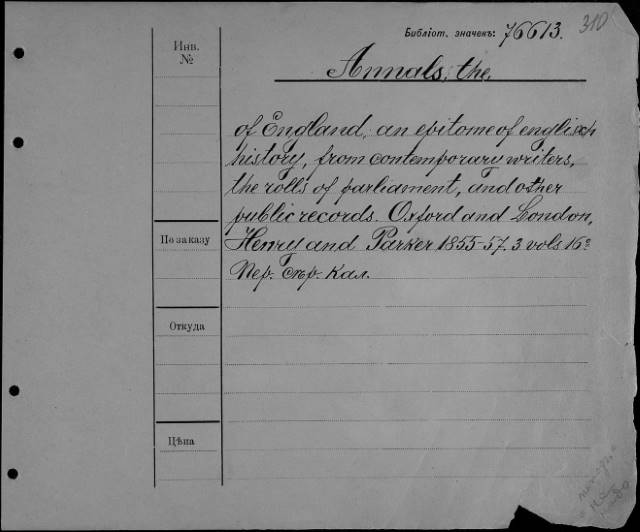 Библіот. значекъ: 76613. 310
Инв. №
Annals, the,
of England, an epitome of englisch
history, from contemporary writers,
the rolls of parliament, and other
public records. Oxford and London,
По заказу
Henry and Parker 1855-57. 3 vols 16º
Пер. Сѣр. Кал.
Откуда
Цѣна